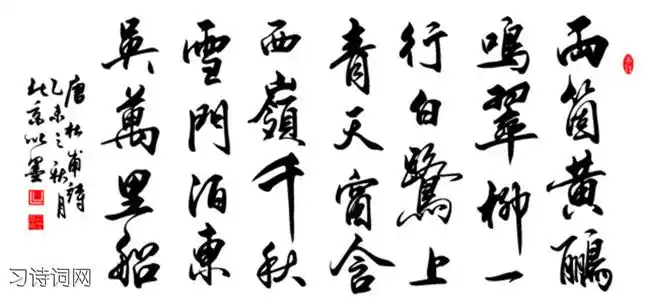 兩箇黃鸝
鳴翠柳一
行白鷺上
青天窗含
西嶺千秋
雪門泊東
吳萬里船
唐杜甫詩
乙未之秋月
墨
习诗词网